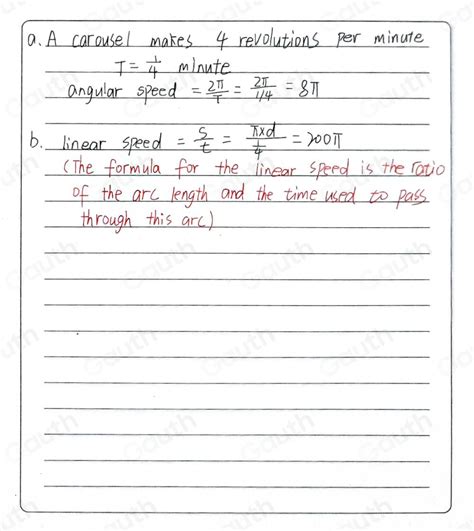 a. A carousel makes 4 revolutions per minute
T = 1/4 minute
angular speed = 2π/T = 2π/1/4 = 8π
b. linear speed = s/t = π×d/1/4 = 200π
(The formula for the linear speed is the ratio
of the arc length and the time used to pass
through this arc)
Gauth